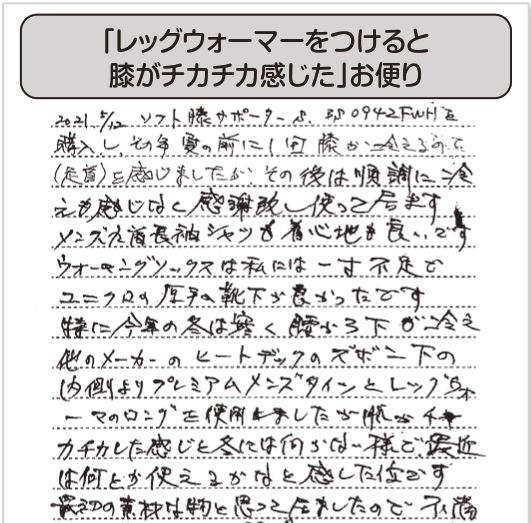 「レッグウォーマーをつけると
膝がチカチカ感じた」お便り
2021.5/12 ソフト膝サポーターS. 3S0942FWHを
購入し、その年夏の前に1回膝が冷えるみて
(足首)を感じましたが その後は順調に冷
えも感じなく感謝致し使って居ます
メンズ丸首長袖シャツも着心地も良いです
ウォーキングソックスは私には一寸不足で
ユニクロの厚手の靴下が良かったです
特に今年の冬は寒く腰から下が冷え
他のメーカーのヒートテックのズボン下の
内側よりプレミアムメンズタインとレッグウォ
ーマのロングを使用しましたが膝がチ
カチカした感じと冬には何かない様で最近
は何とか使えるかなと感じた位です
最初の素材は物と思って居ましたので 不満